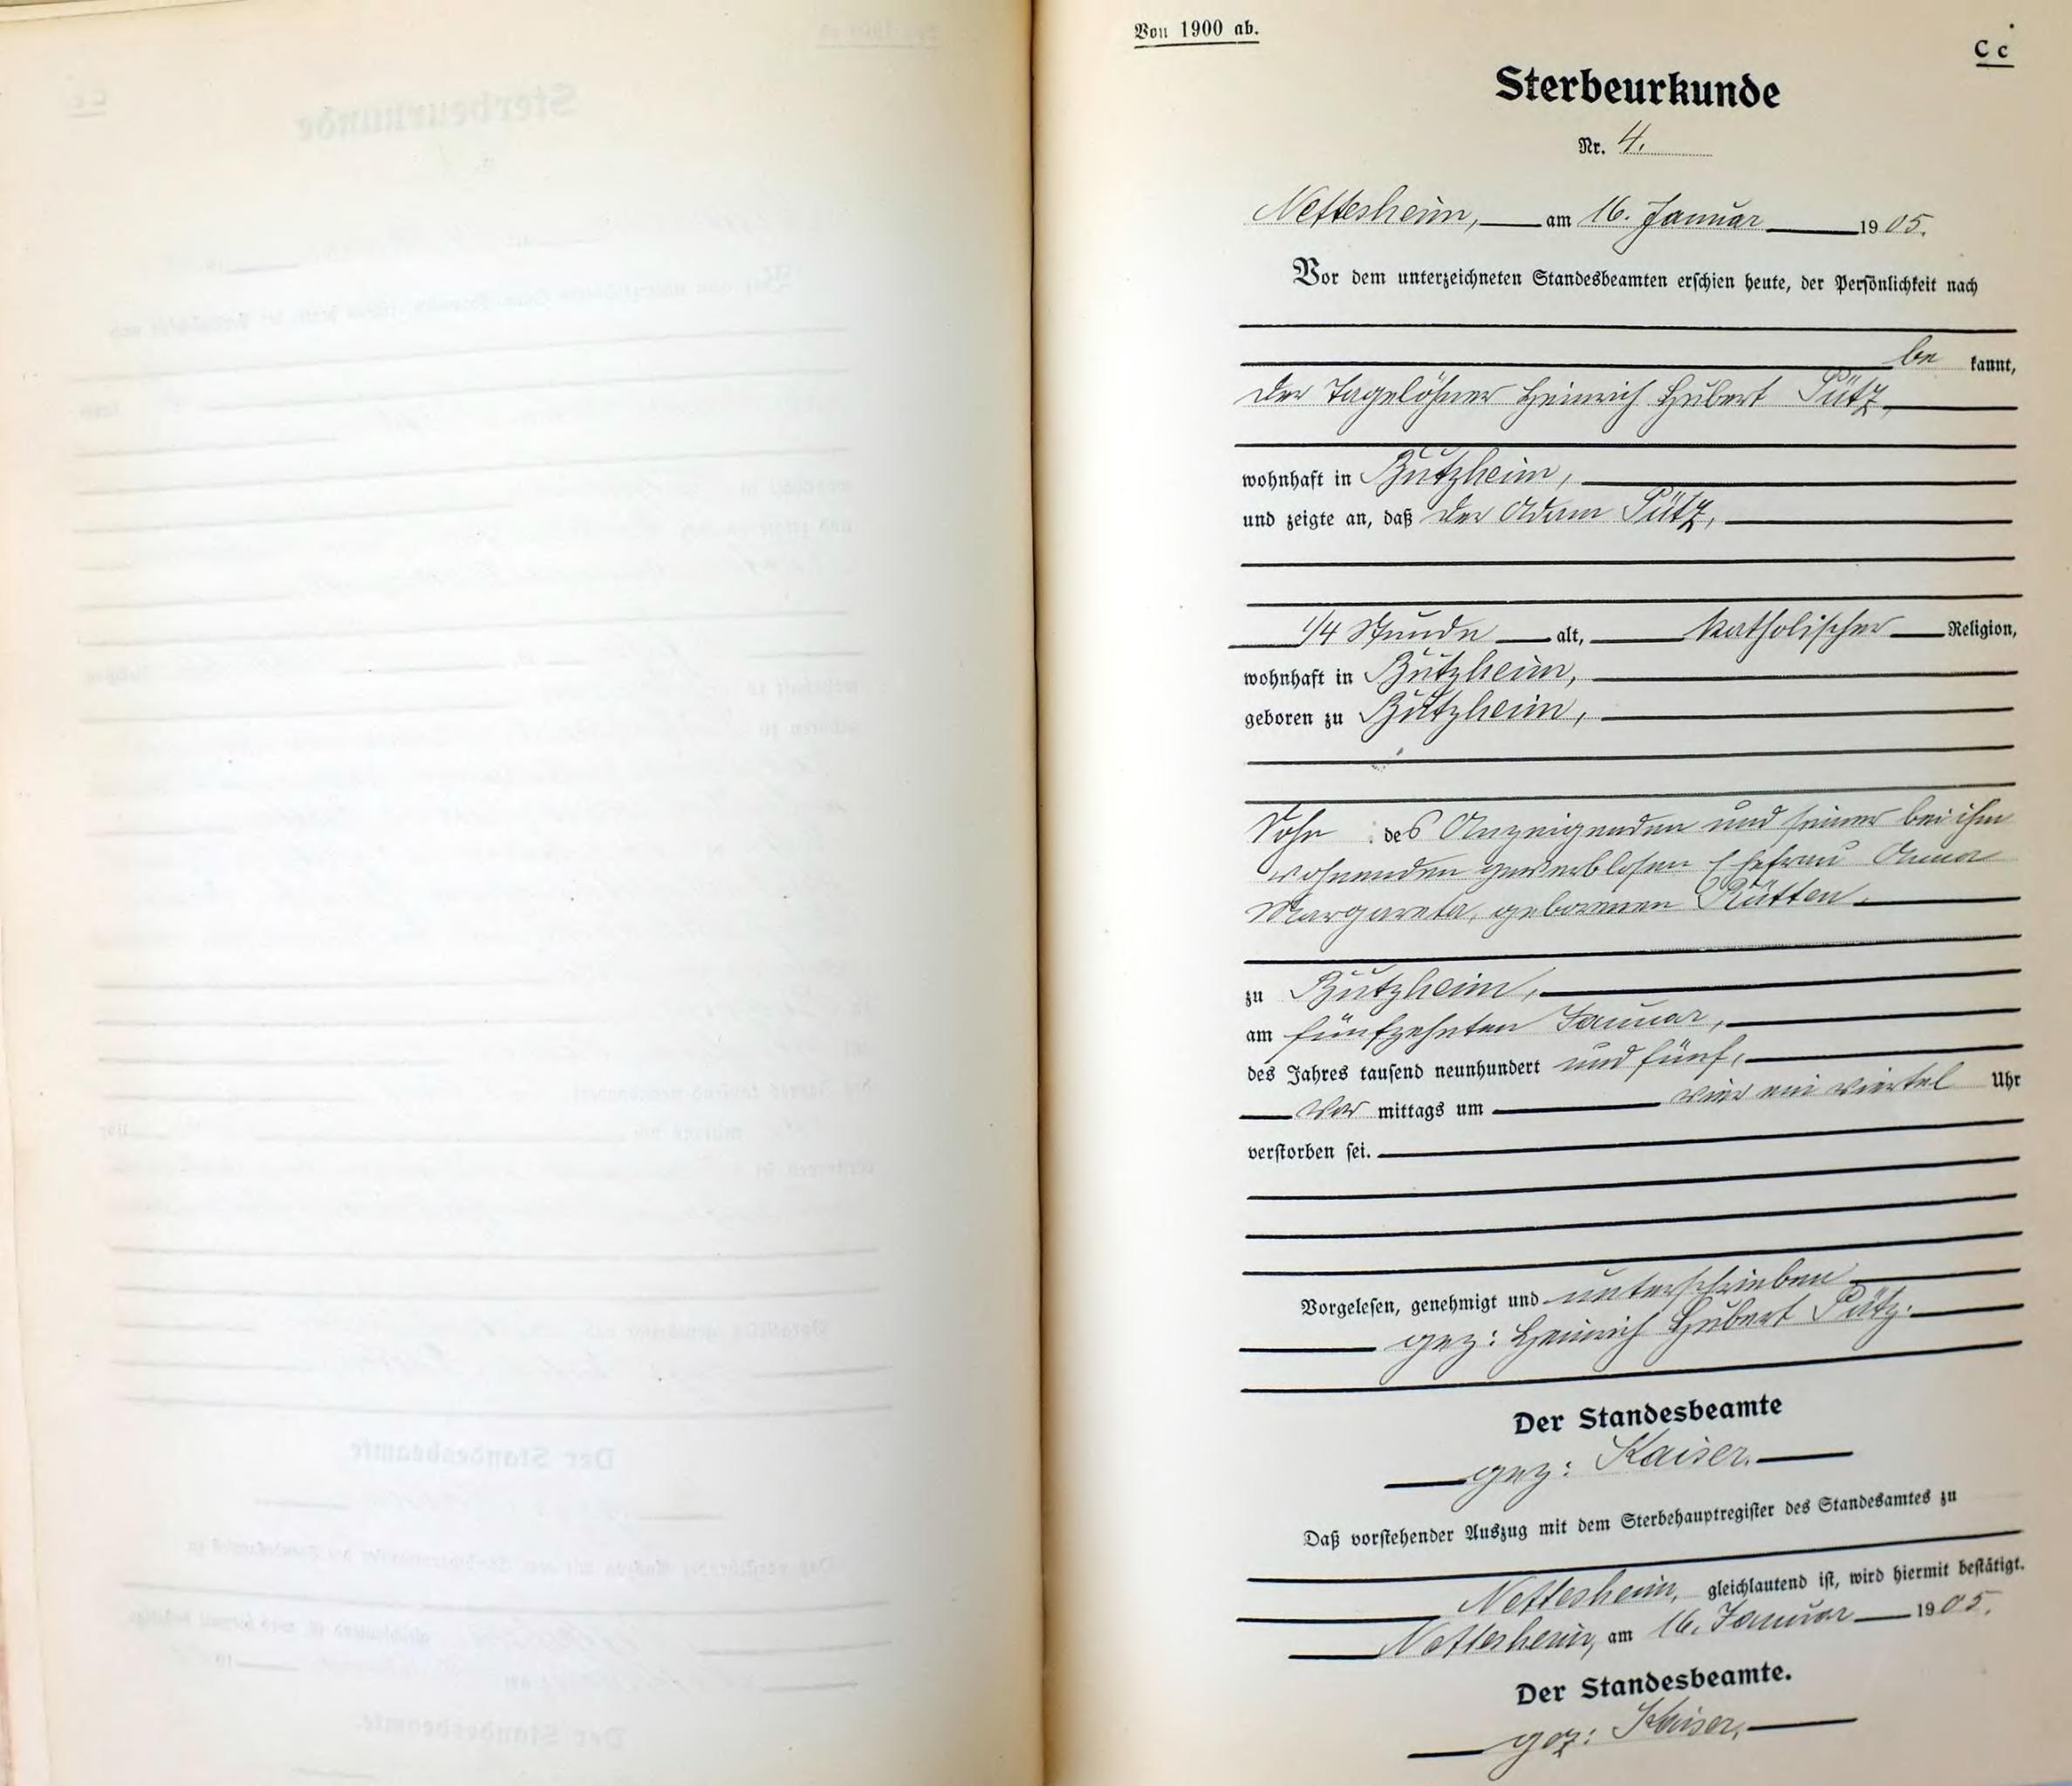 Von 1900 ab.
C c
Sterbeurkunde
Nr. 4.
Nettesheim, am 16. Januar 1905.
Vor dem unterzeichneten Standesbeamten erschien heute, der Persönlichkeit nach
be kannt,
der Tagelöhner Heinrich Hubert Pütz,
wohnhaft in Butzheim,
und zeigte an, daß der Adam Pütz,
1/4 Stunde alt, katholischer Religion,
wohnhaft in Butzheim,
geboren zu Butzheim,
Sohn des Anzeigenden und seiner bei ihm
wohnenden gewerblosen Ehefrau Anna
Margareta, geborenen Rütten.
zu Butzheim,
am fünfzehnten Januar,
des Jahres tausend neunhundert und fünf,
Vor mittags um vier ein viertel Uhr
verstorben sei.
Vorgelesen, genehmigt und unterschrieben
gez: Heinrich Hubert Pütz.
Der Standesbeamte
gez: Kaiser.
Daß vorstehender Auszug mit dem Sterbehauptregister des Standesamtes zu
Nettesheim, gleichlautend ist, wird hiermit bestätigt.
Nettesheim, am 16. Januar 1905.
Der Standesbeamte.
gez: Kaiser.